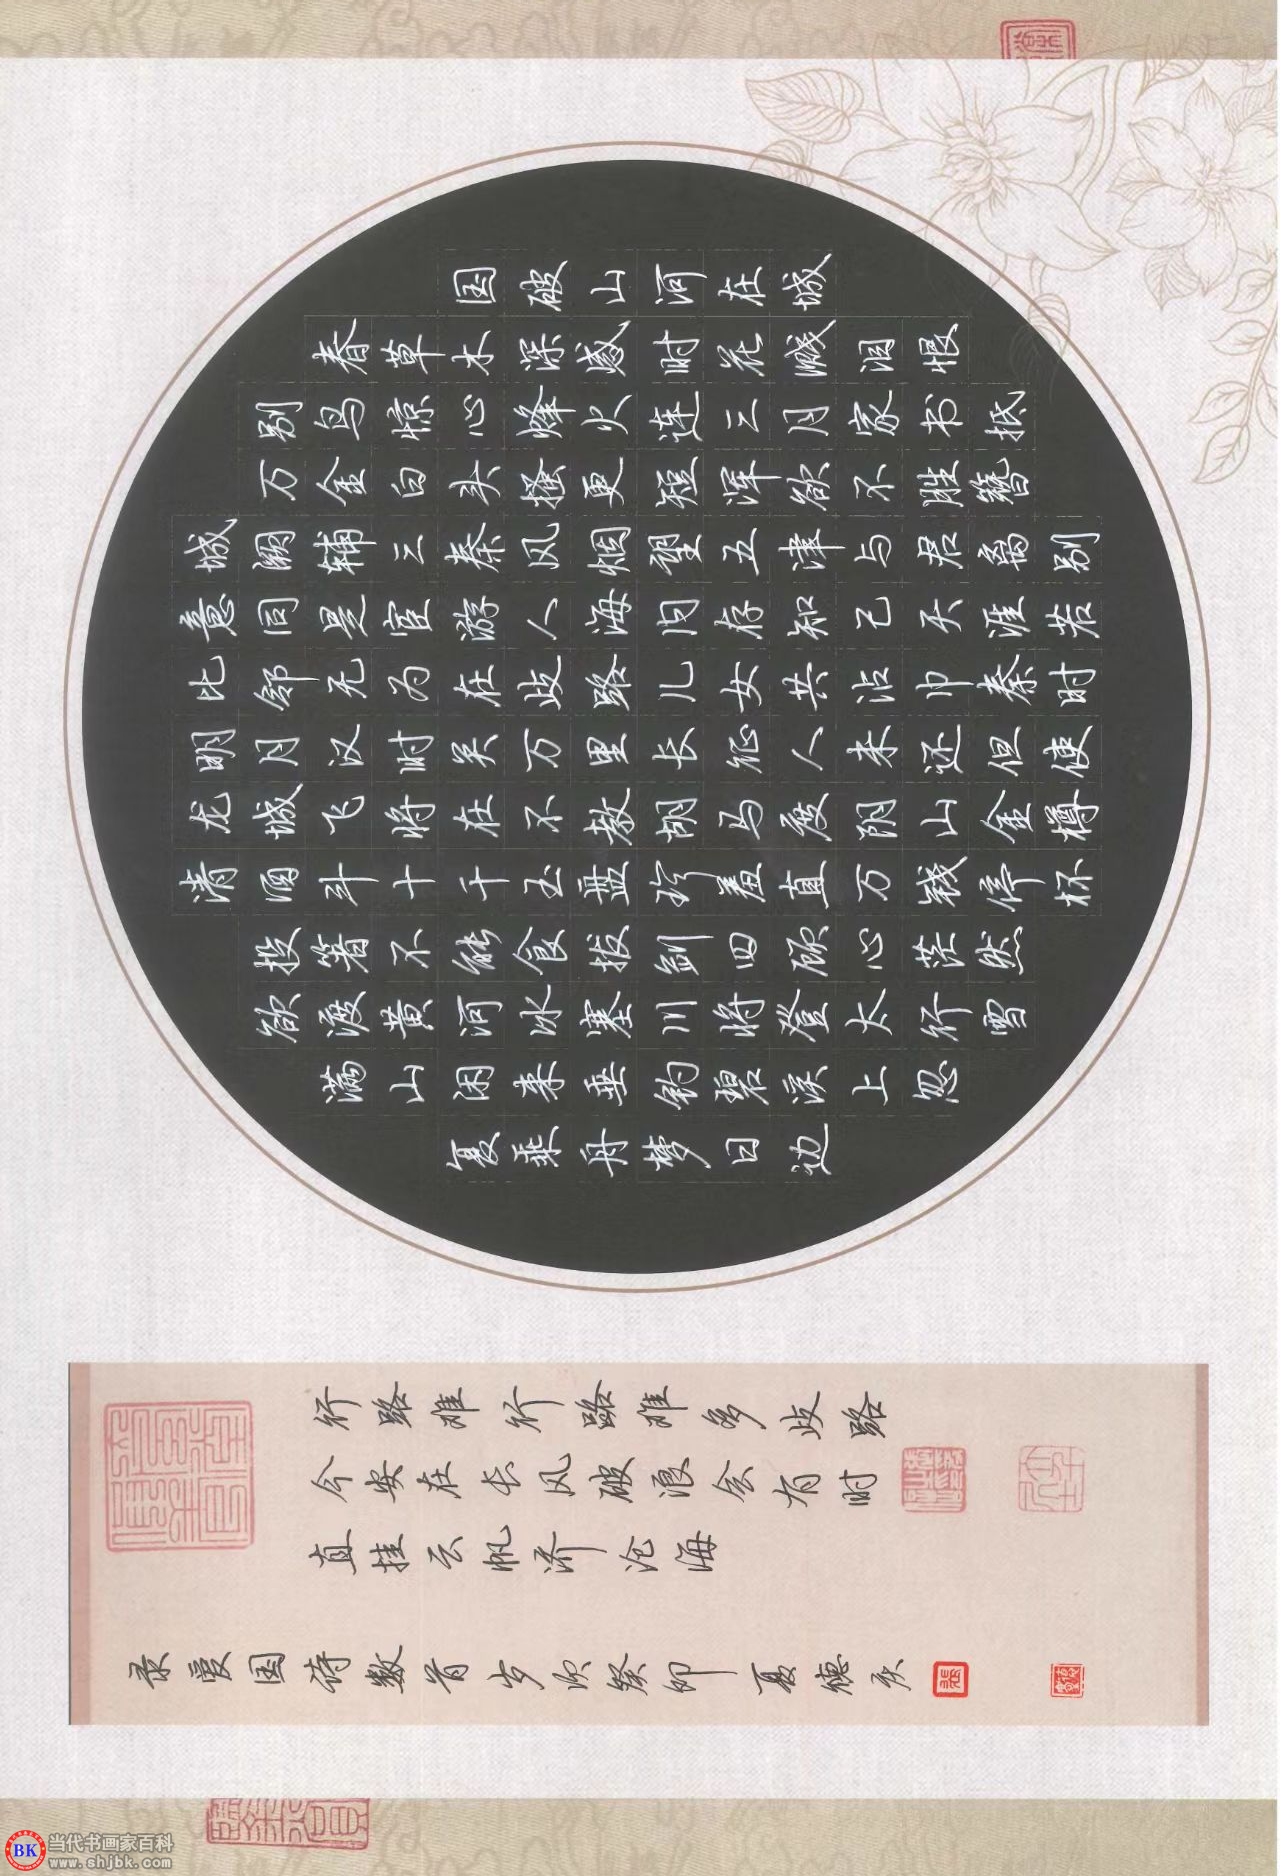 国破山河在城
春草木深感时花溅泪恨
别鸟惊心烽火连三月家书抵
万金白头搔更短浑欲不胜簪
城阙辅三秦风烟望五津与君离别
意同是宦游人海内存知己天涯若
比邻无为在歧路儿女共沾巾秦时
明月汉时关万里长征人未还但使
龙城飞将在不教胡马度阴山金樽
清酒斗十千玉盘珍羞直万钱停杯
投箸不能食拔剑四顾心茫然
欲渡黄河冰塞川将登太行雪
满山闲来垂钓碧溪上忽
复乘舟梦日边
行路难行路难多歧路
今安在长风破浪会有时
直挂云帆济沧海
录爱国诗数首岁次癸卯夏德庆
BK
当代书画家百科
www.shjbk.com